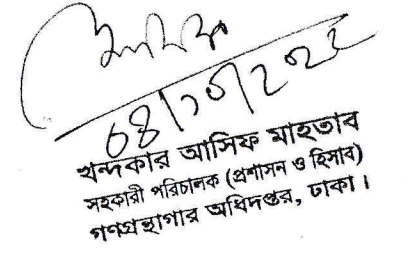 খন্দকার আসিফ মাহতাব
সহকারী পরিচালক (প্রশাসন ও হিসাব)
গণগ্রন্থাগার অধিদপ্তর, ঢাকা।